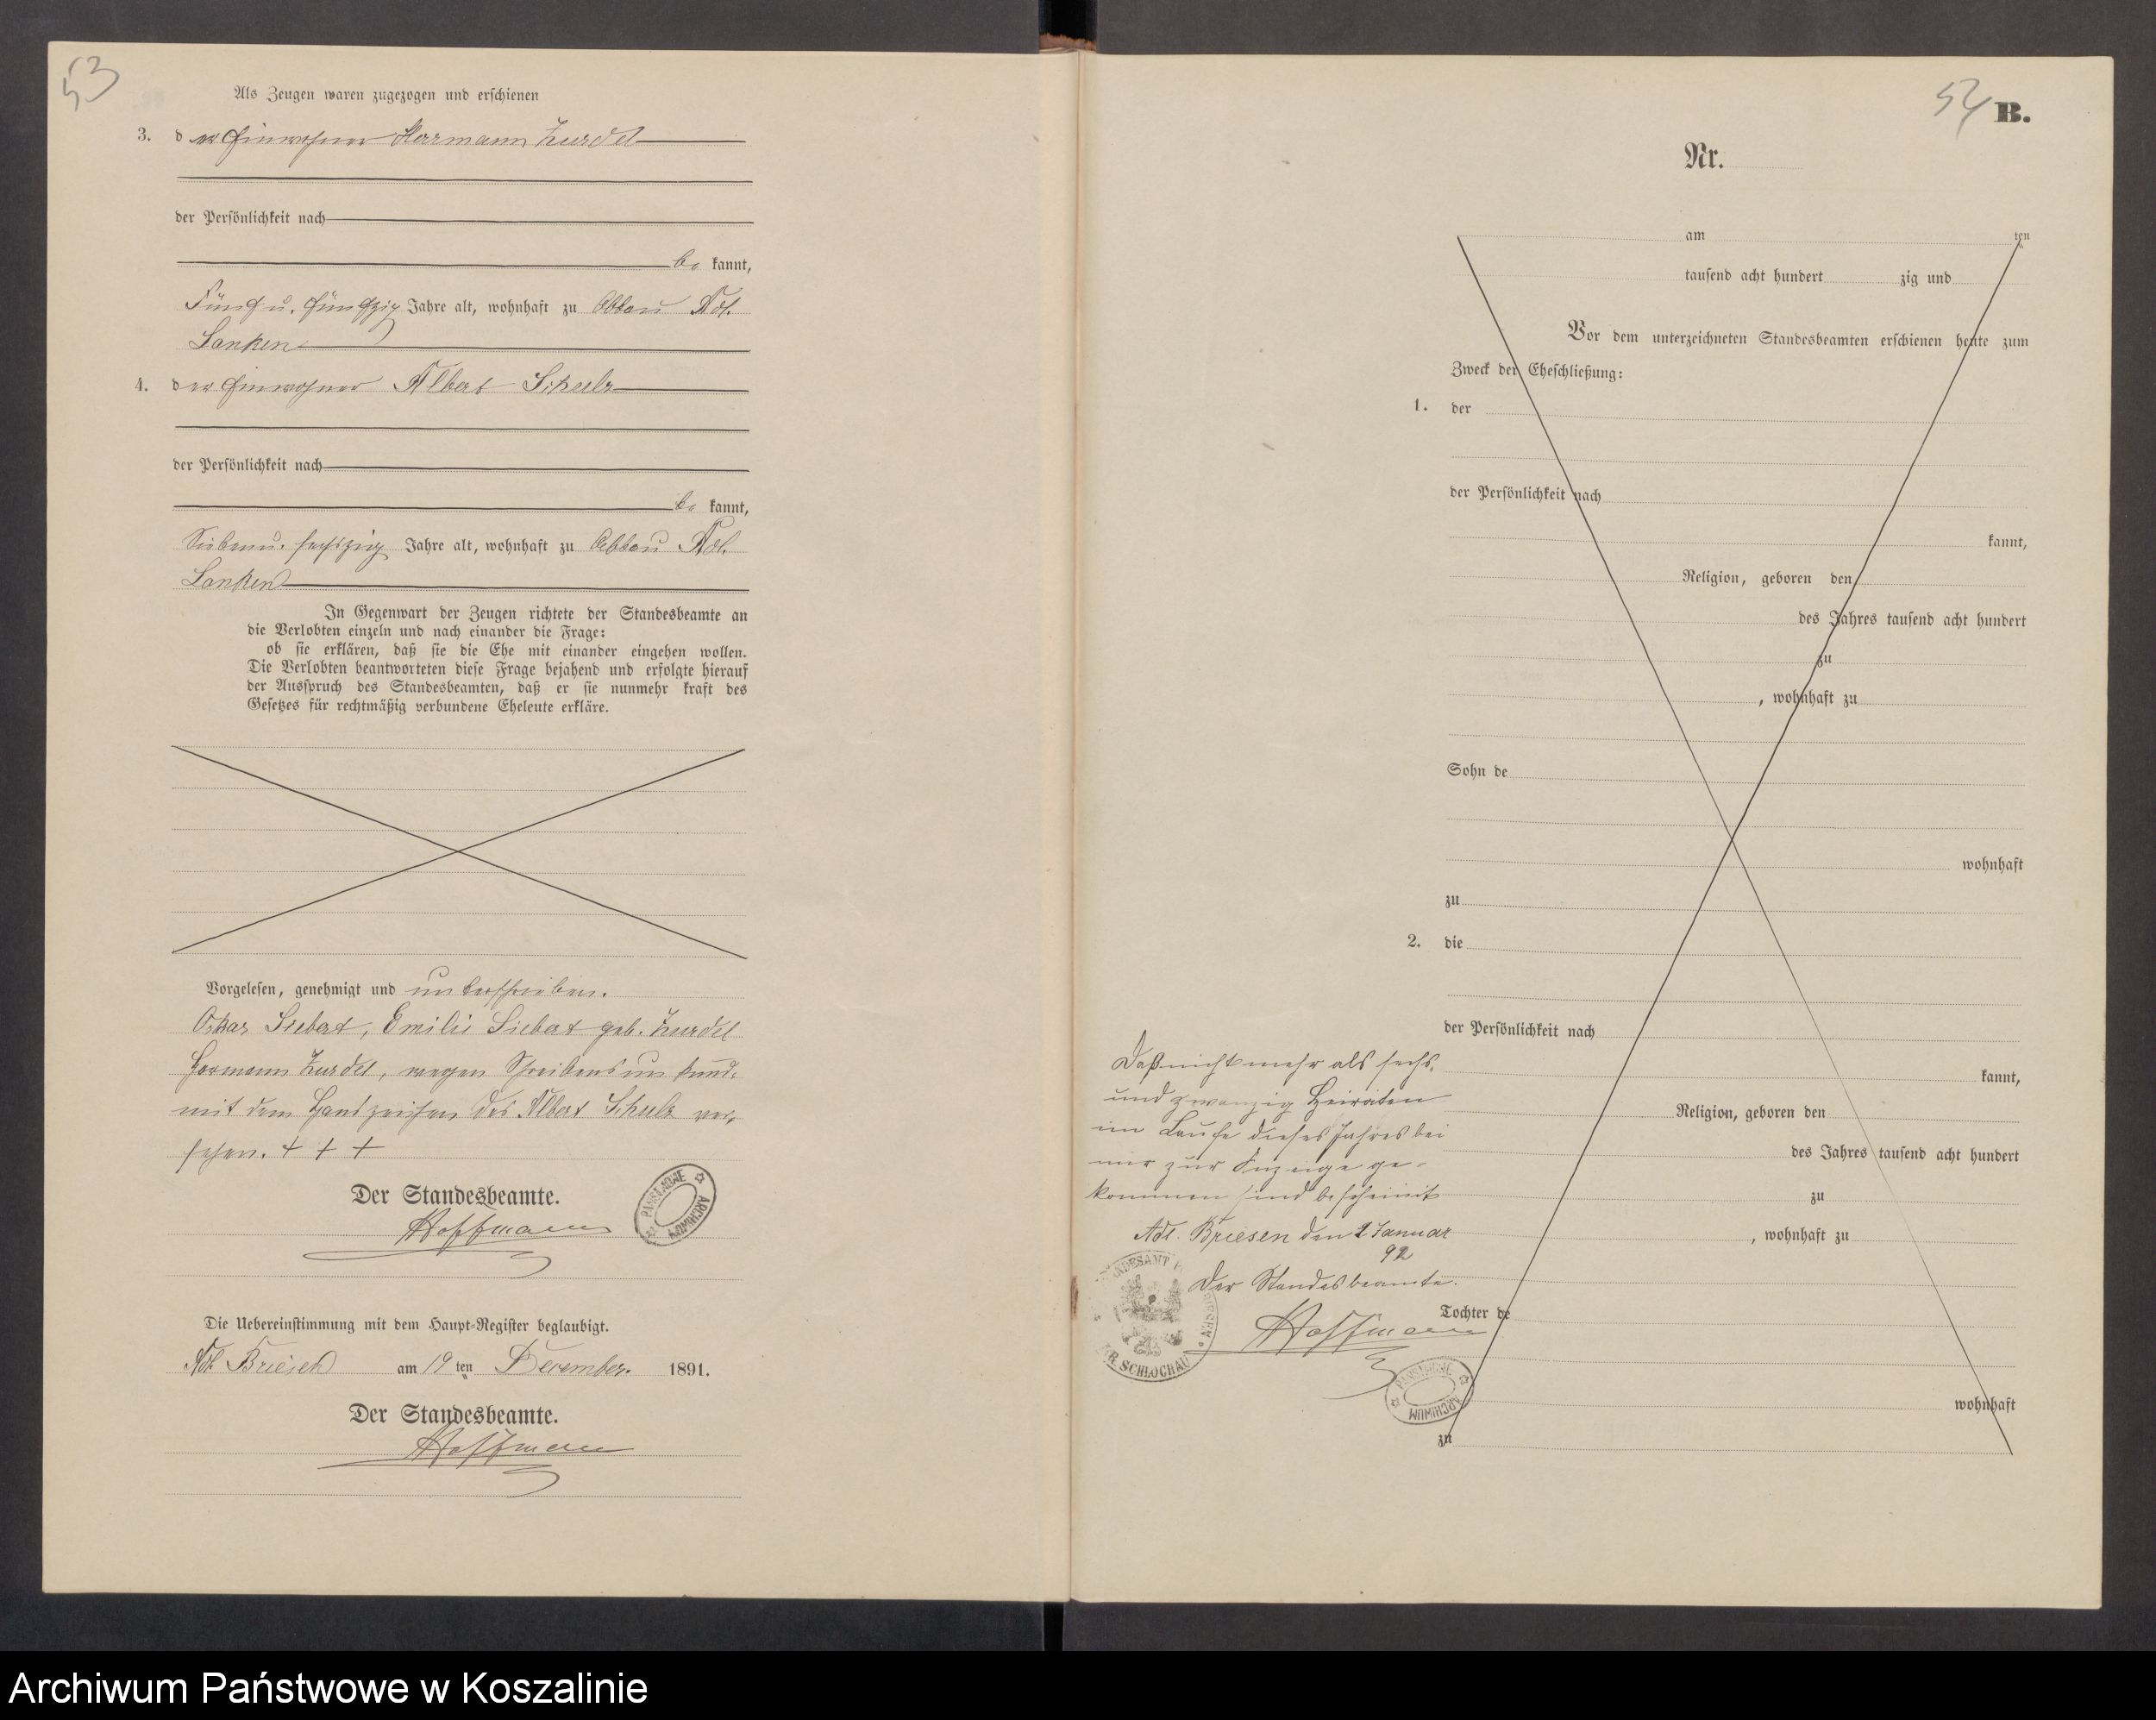 53
Als Zeugen waren zugezogen und erschienen
3. der Einwohner Hermann Zurdel
der Persönlichkeit nach
be kannt,
Fünf u. fünfzig Jahre alt, wohnhaft zu Abbau Adl.
Lanken
4. der Einwohner Albert Schulz
der Persönlichkeit nach
be kannt,
Sieben u. sechszig Jahre alt, wohnhaft zu Abbau Adl.
Lanken
In Gegenwart der Zeugen richtete der Standesbeamte an
die Verlobten einzeln und nach einander die Frage:
ob sie erklären, daß sie die Ehe mit einander eingehen wollen.
Die Verlobten beantworteten diese Frage bejahend und erfolgte hierauf
der Ausspruch des Standesbeamten, daß er sie nunmehr kraft des
Gesetzes für rechtmäßig verbundene Eheleute erkläre.
Vorgelesen, genehmigt und unterschrieben.
Oskar Siebert, Emilie Siebert geb. Zurdel
Hermann Zurdel, wegen Schreibensunkund.
mit dem Handzeichen des Albert Schulz ver,
sehen. + + +
Der Standesbeamte.
Hoffmann
PAŃSTWOWE ARCHIWUM
Die Uebereinstimmung mit dem Haupt-Register beglaubigt.
Adl Briesen am 19 ten December. 1891.
Der Standesbeamte.
Hoffmann
54 B.
Nr.
am ten
tausend acht hundert zig und
Vor dem unterzeichneten Standesbeamten erschienen heute zum
Zweck der Eheschließung:
1. der
der Persönlichkeit nach
kannt,
Religion, geboren den
des Jahres tausend acht hundert
zu
, wohnhaft zu
Sohn de
wohnhaft
zu
2. die
der Persönlichkeit nach
kannt,
Religion, geboren den
des Jahres tausend acht hundert
zu
, wohnhaft zu
Tochter de
wohnhaft
zu
Daß nicht mehr als sechs,
und zwanzig Heiraten
im Laufe dieses Jahres bei
mir zur Anzeige ge-
kommen sind bescheinit
Adl. Briesen den 1 Januar
92
Der Standesbeamte.
Hoffmann
STANDESAMT
KR. SCHLOCHAU
PAŃSTWOWE ARCHIWUM
Archiwum Państwowe w Koszalinie